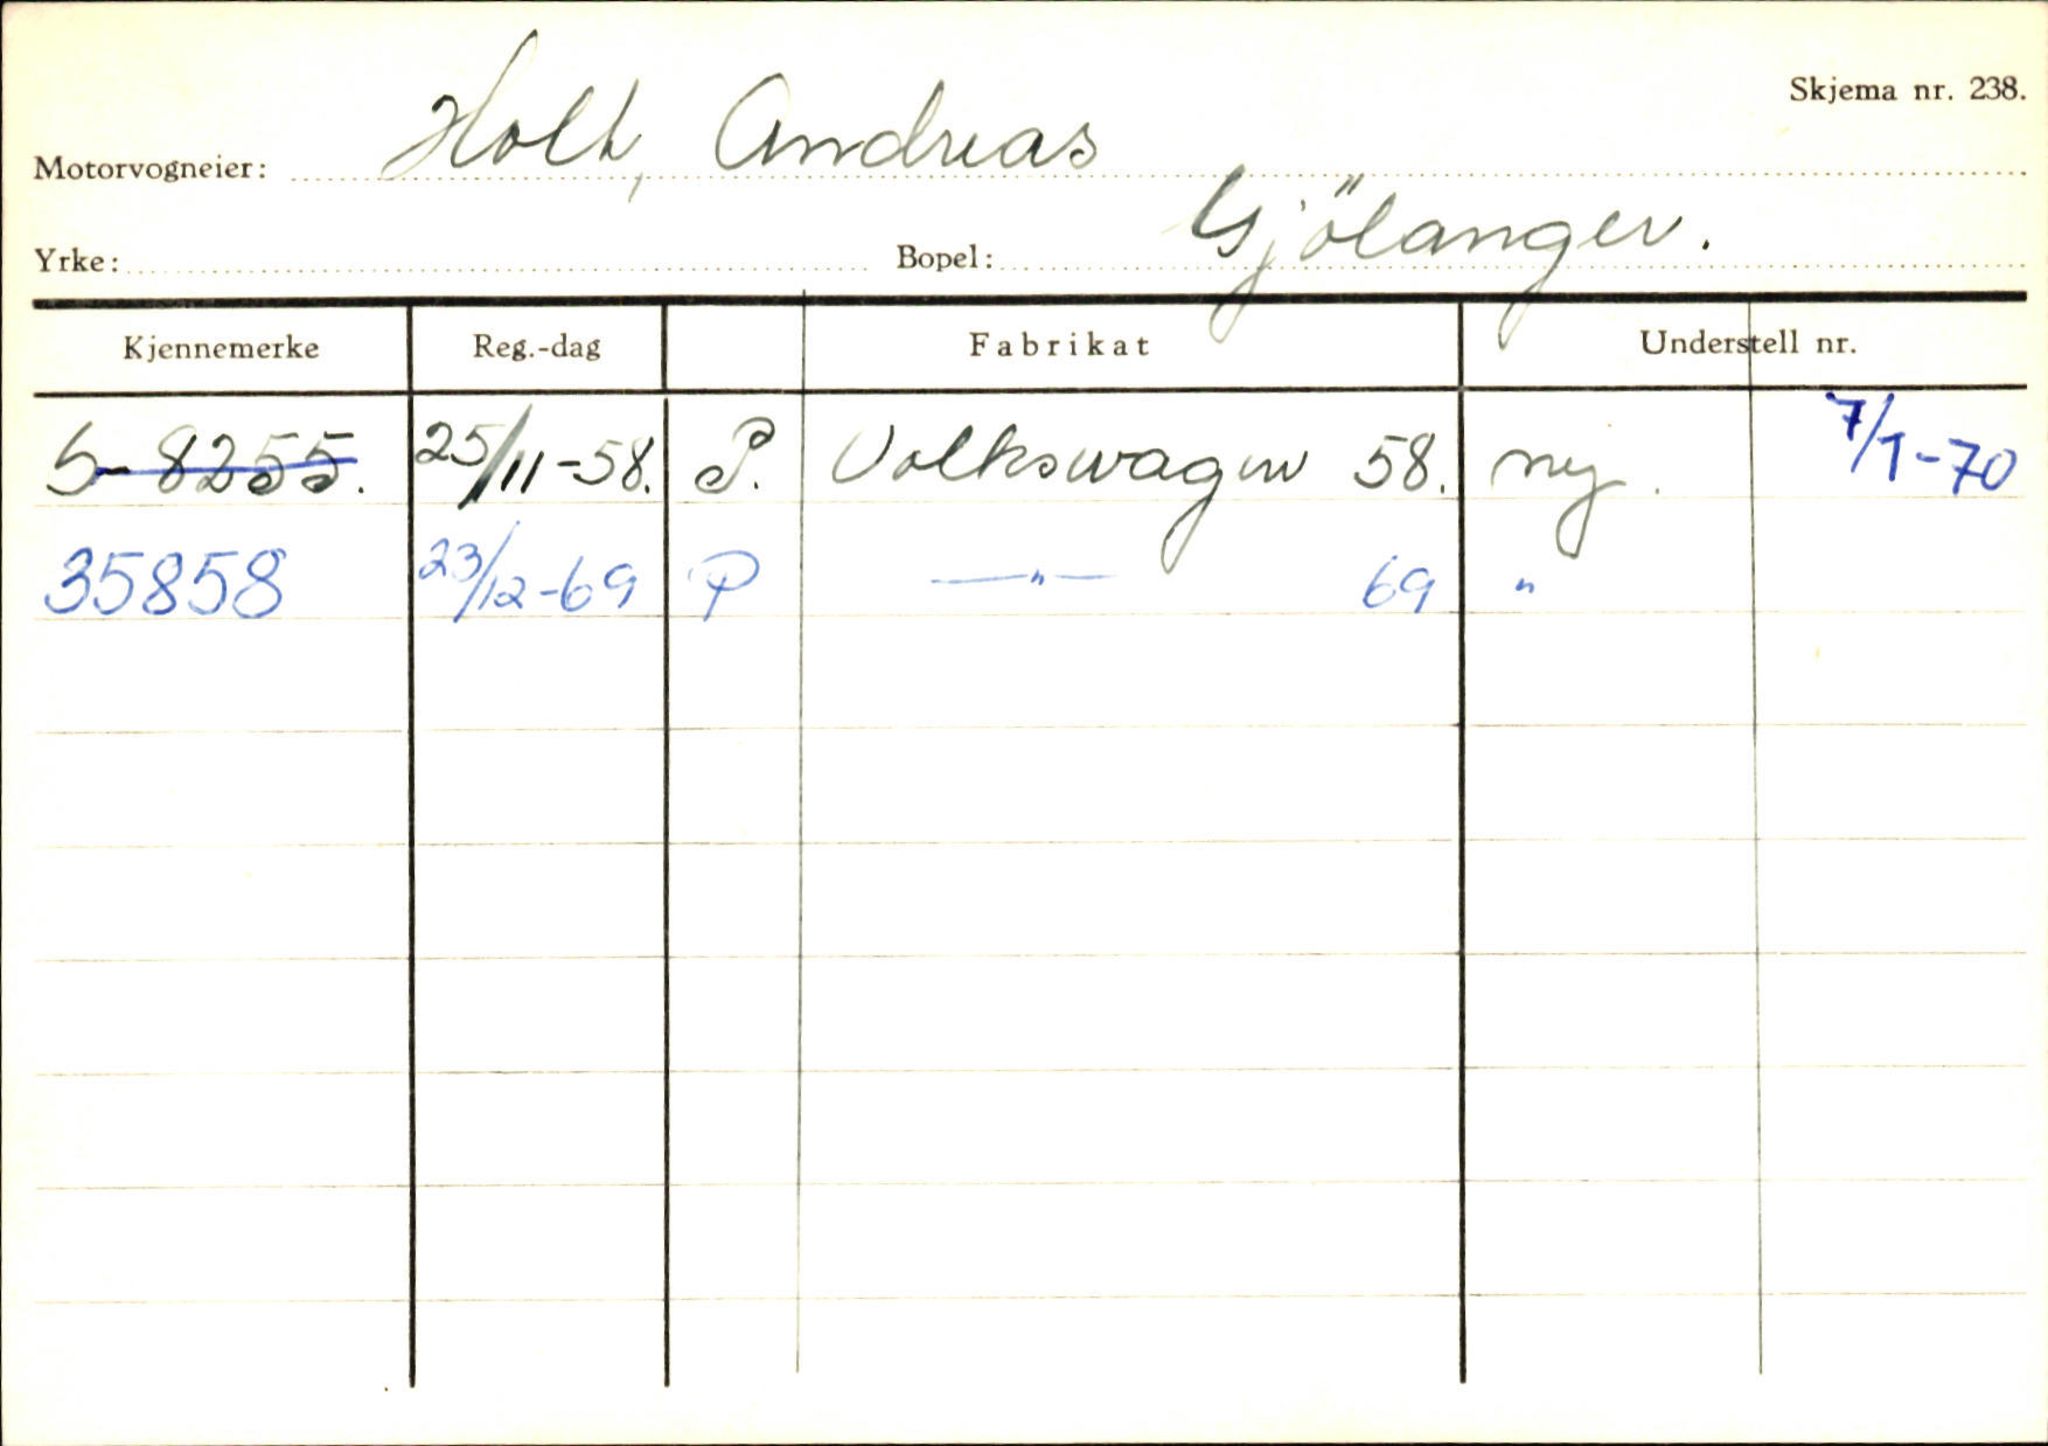 Skjema nr. 238.
Motorvogneier: Holt, Andreas
Yrke: Bopel: Gjölanger.
Kjennemerke Reg.-dag Fabrikat Understell nr.
S-8255. 25/11-58. P. Volkswagen 58. ny. 7/1-70
35858 23/12-69 P —"— 69 "